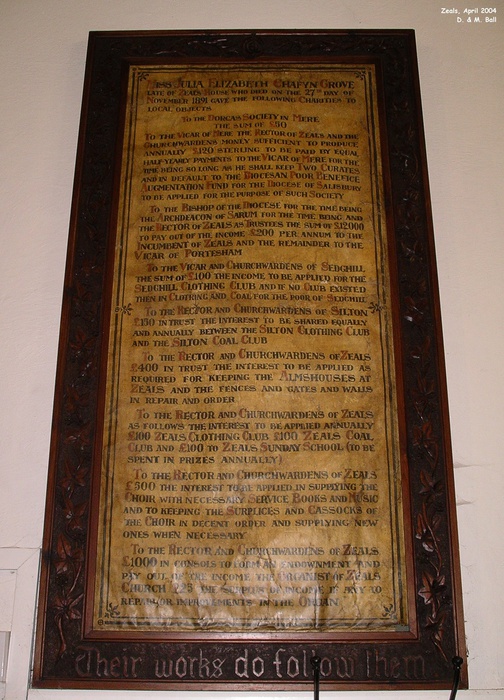 Zeals, April 2004
D. & M. Ball
Miss Julia Elizabeth Chafyn Grove
late of Zeals House who died on the 27th day of
November 1891 gave the following Charities to
local objects
To the Dorcas Society in Mere
the sum of £50
To the Vicar of Mere the Rector of Zeals and the
Churchwardens money sufficient to produce
annually £120 sterling to be paid by equal
half-yearly payments to the Vicar of Mere for the
time being so long as he shall keep Two Curates
and in default to the Diocesan Poor Benefice
Augmentation Fund for the Diocese of Salisbury
to be applied for the purpose of such Society
To the Bishop of the Diocese for the time being
the Archdeacon of Sarum for the time being and
the Rector of Zeals as Trustees the sum of £12000
to pay out of the income £200 per annum to the
Incumbent of Zeals and the remainder to the
Vicar of Portesham
To the Vicar and Churchwardens of Sedghill
the sum of £100 the income to be applied for the
Sedghill Clothing Club and if no Club existed
then in Clothing and Coal for the poor of Sedghill
To the Rector and Churchwardens of Silton
£150 in trust the interest to be shared equally
and annually between the Silton Clothing Club
and the Silton Coal Club
To the Rector and Churchwardens of Zeals
£400 in trust the interest to be applied as
required for keeping the Almshouses at
Zeals and the fences and gates and walls
in repair and order
To the Rector and Churchwardens of Zeals
as follows the interest to be applied annually
£100 Zeals Clothing Club £100 Zeals Coal
Club and £100 to Zeals Sunday School (to be
spent in prizes annually)
To the Rector and Churchwardens of Zeals
£500 the interest to be applied in supplying the
Choir with necessary Service Books and Music
and to keeping the Surplices and Cassocks of
the Choir in decent order and supplying new
ones when necessary
To the Rector and Churchwardens of Zeals
£1000 in Consols to form an endowment and
pay out of the income the Organist of Zeals
Church £25 the surplus of income if any to
repair or improvements in the Organ
Their works do follow them